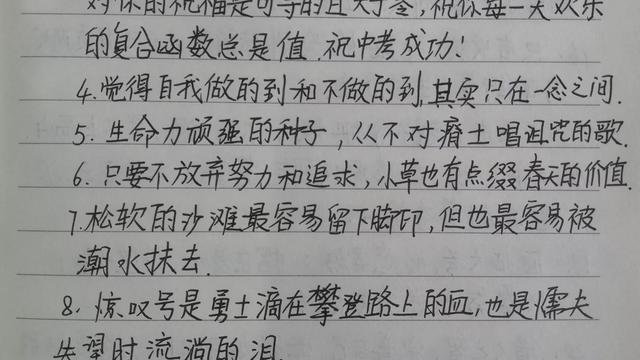 对你的祝福是可导的且大于零,祝你每一天欢乐
的复合函数总是值.祝中考成功!
4.觉得自我做的到和不做的到,其实只在一念之间.
5.生命力顽强的种子,从不对瘠土唱诅咒的歌.
6.只要不放弃努力和追求,小草也有点缀春天的价值.
7.松软的沙滩最容易留下脚印,但也最容易被
潮水抹去.
8.惊叹号是勇士滴在攀登路上的血,也是懦夫
失望时流淌的泪.